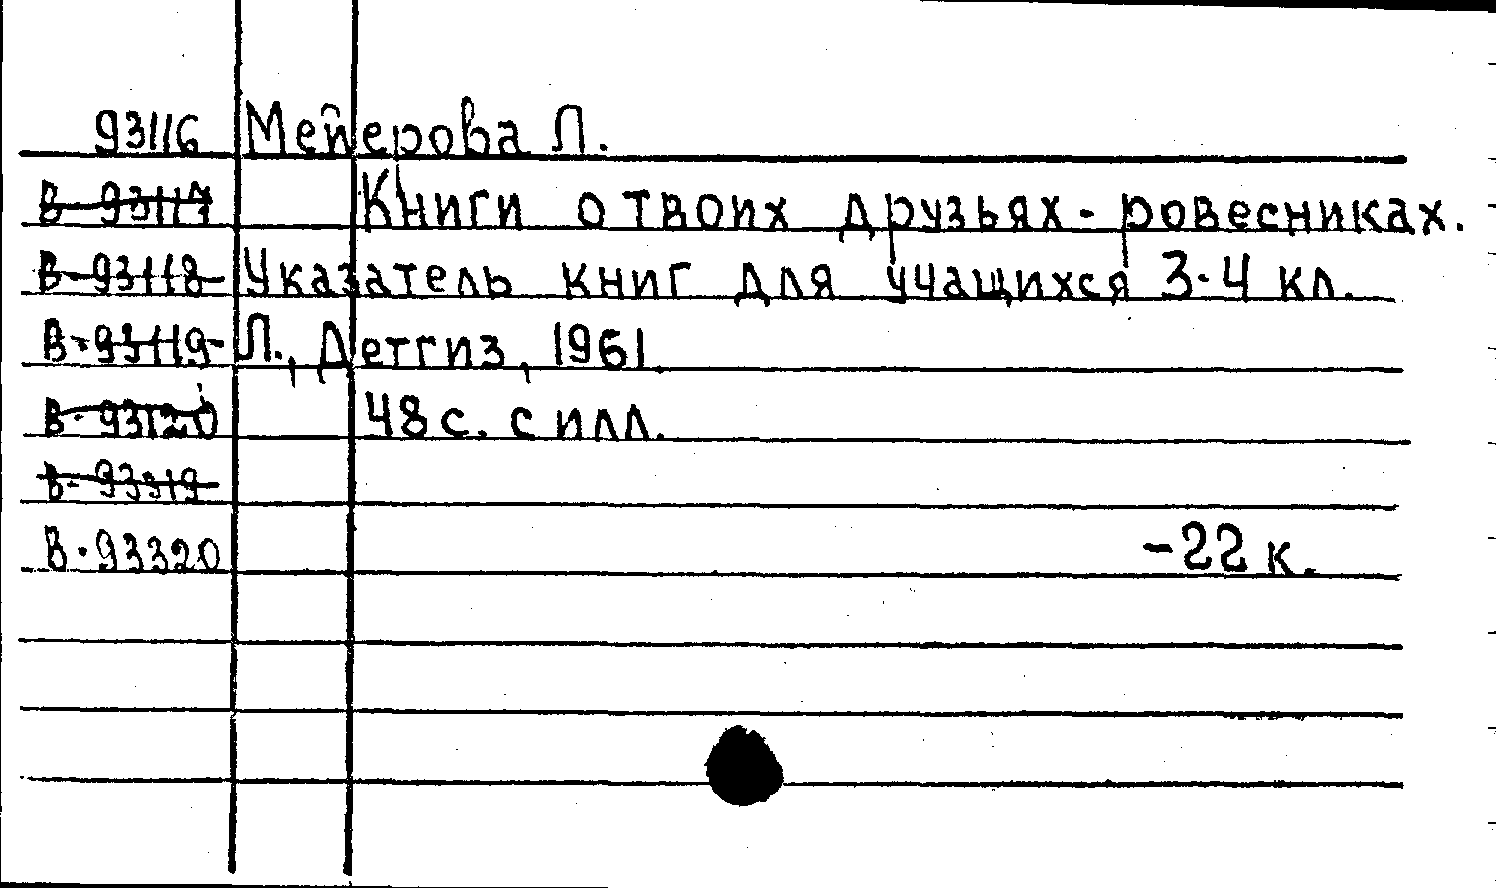 93116 Мейерова Л.
В-93117 Книги о твоих друзьях-ровесниках.
В-93118 Указатель книг для учащихся 3-4 кл.
В-93119 Л., Детгиз, 1961.
В-93120 48 с. с илл.
В-93319
В-93320 -22 к.